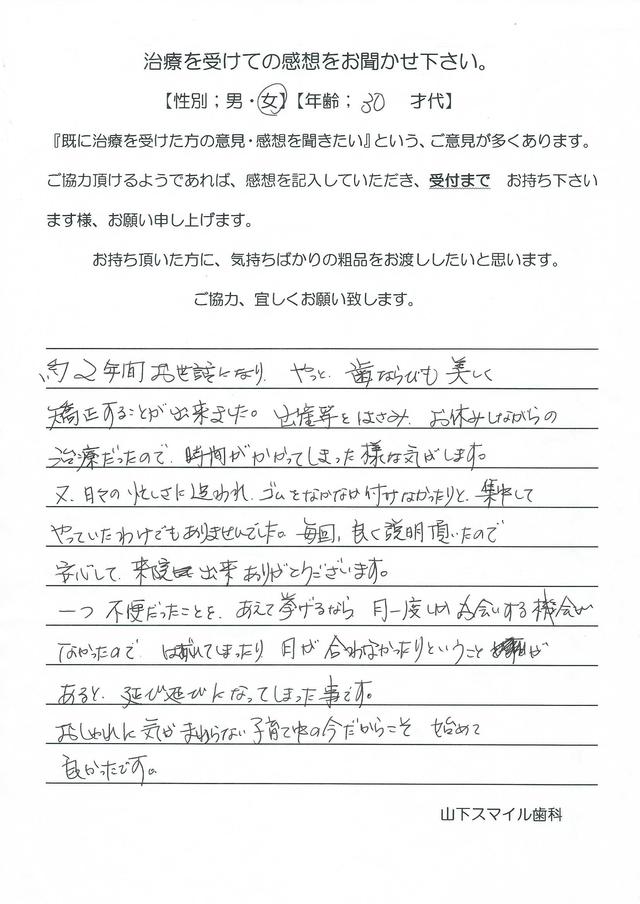 治療を受けての感想をお聞かせ下さい。
【性別；男・女】【年齢；30 才代】
『既に治療を受けた方の意見・感想を聞きたい』という、ご意見が多くあります。
ご協力頂けるようであれば、感想を記入していただき、受付まで お持ち下さい
ます様、お願い申し上げます。
お持ち頂いた方に、気持ちばかりの粗品をお渡ししたいと思います。
ご協力、宜しくお願い致します。
約2年間お世話になり、やっと、歯ならびも美しく
矯正することが出来ました。出産等をはさみ、お休みしながらの
治療だったので、時間がかかってしまった様な気がします。
又、日々の忙しさに追われ、ゴムをなかなか付けなかったりと、集中して
やっていたわけでもありませんでした。毎回、良く説明頂いたので
安心して、来院出来ありがとうございます。
一つ 不便だったことを、あえて挙げるなら 月一度しかお会いする機会が
なかったので はずれてしまったり 日が合わなかったりということが
あると、延び延びになってしまった事です。
おしゃれに気がまわらない子育て中の今だからこそ 始めて
良かったです。
山下スマイル歯科